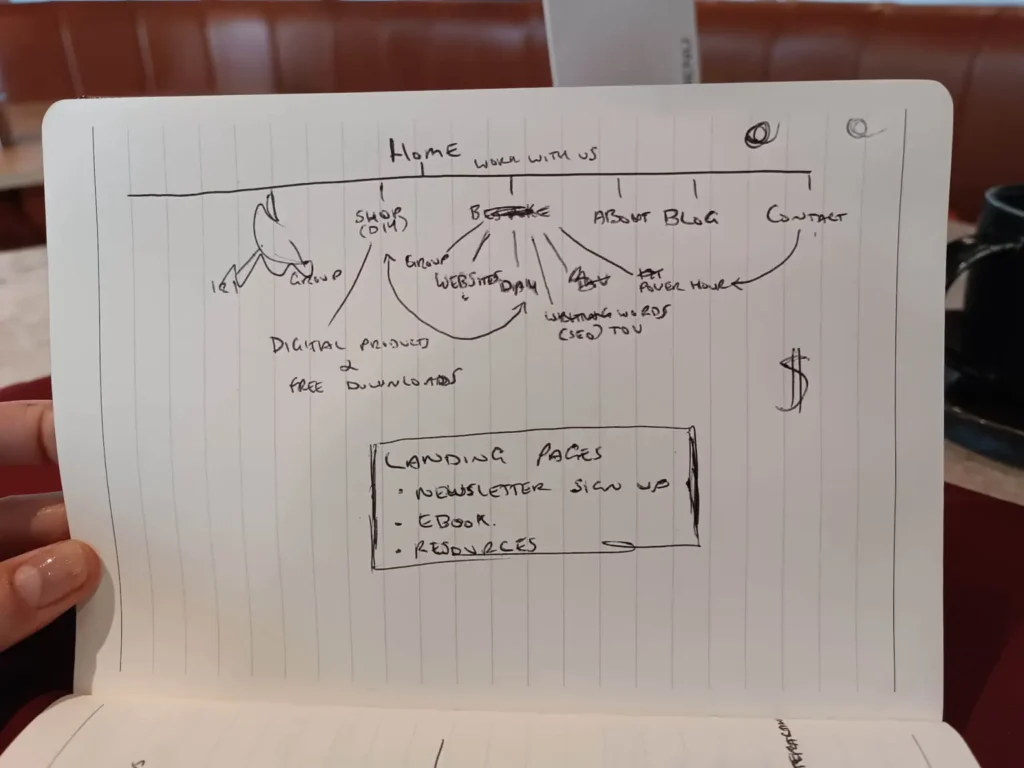 MENU
HOME
WORK WITH US
SHOP
(DIY)
ABOUT
BLOG
CONTACT
1:1
GROUP
GROUP
WEBSITES
DAY
POWER HOUR
WORDS
(SEO) TOV
DIGITAL PRODUCTS
&
FREE DOWNLOADS
$
LANDING PAGES
• NEWSLETTER SIGN UP
• EBOOK.
• RESOURCES